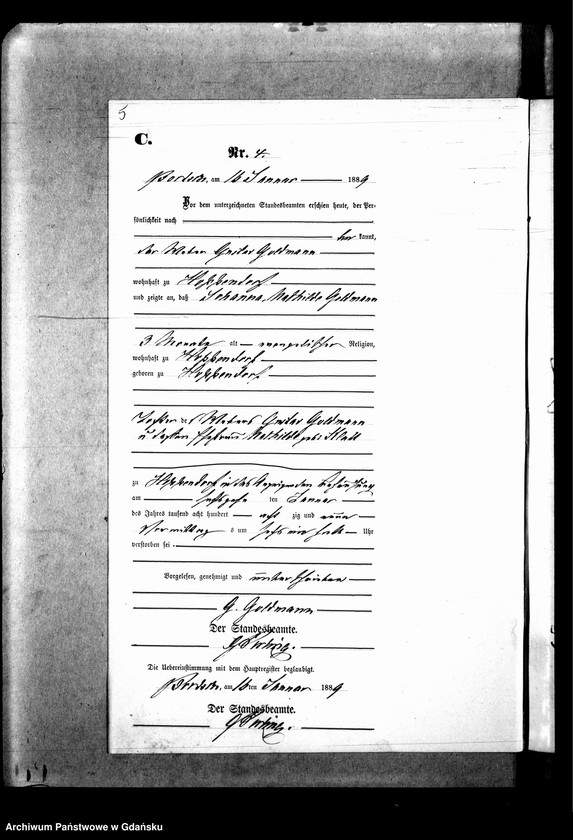 5
C.
Nr. 4.
am 16 Januar 1889
Vor dem unterzeichneten Standesbeamten erschien heute, der Per-
sönlichkeit nach
kannt,
der Weber Gustav Goldmann
wohnhaft zu Hoppendorf
und zeigte an, daß Johanna Mathilde Goldmann
3 Monate alt evangelischer Religion,
wohnhaft zu Hoppendorf
geboren zu Hoppendorf
Tochter des Webers Gustav Goldmann
u. dessen Ehefrau Mathilde geb.
zu Hoppendorf in des
am sechszehn ten Januar
des Jahres tausend acht hundert acht zig und neun
Vormittag s um sechs ein halb Uhr
verstorben sei.
Vorgelesen, genehmigt und unterschrieben
G. Goldmann
Der Standesbeamte.
Die Uebereinstimmung mit dem Hauptregister beglaubigt.
am 16 ten Januar 1889
Der Standesbeamte.
Archiwum Państwowe w Gdańsku